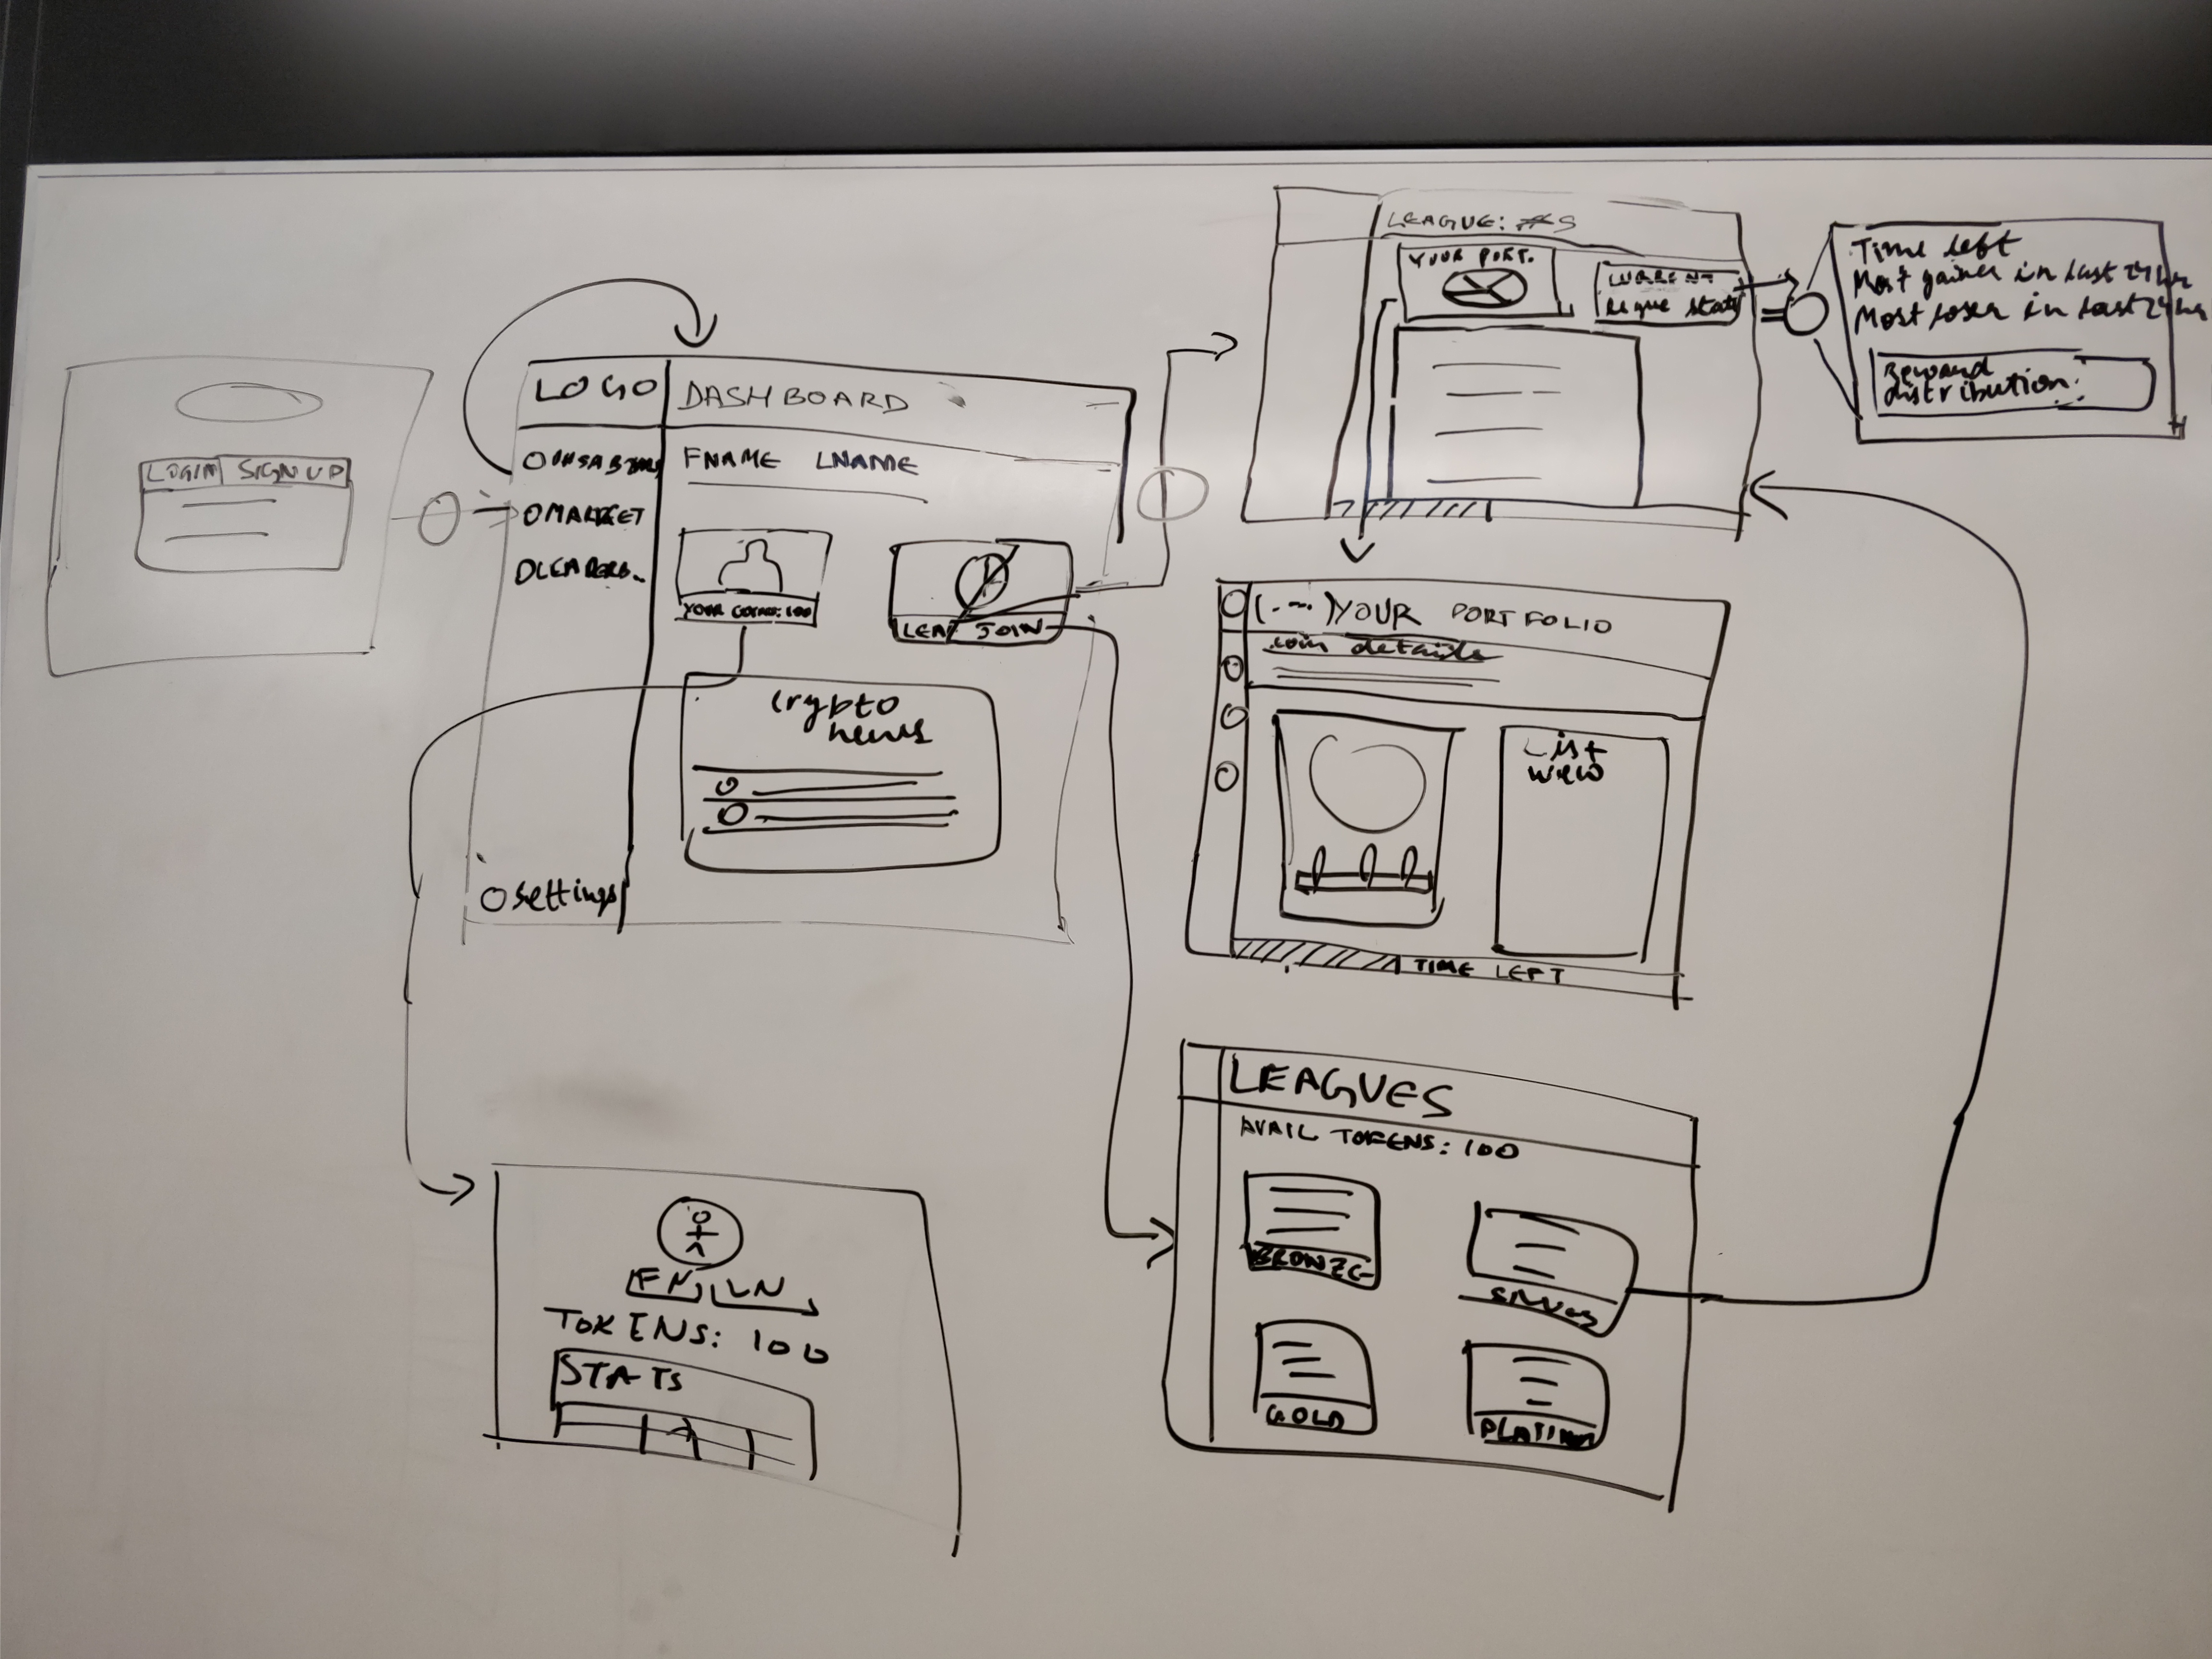 LOGIN SIGN UP
LOGO DASHBOARD
FNAME LNAME
MARKET
YOUR COINS: 100
JOIN
Crypto
news
settings
LEAGUE: #5
YOUR PORT.
CURRENT
Time left
Most gainer in last 24 hr
Most loser in last 24 hr
Reward
distribution
(.--.) YOUR PORTFOLIO
coin details
List
view
TIME LEFT
LEAGUES
AVAIL TOKENS: 100
BRONZE
SILVER
GOLD
FN LN
TOKENS: 100
STATS